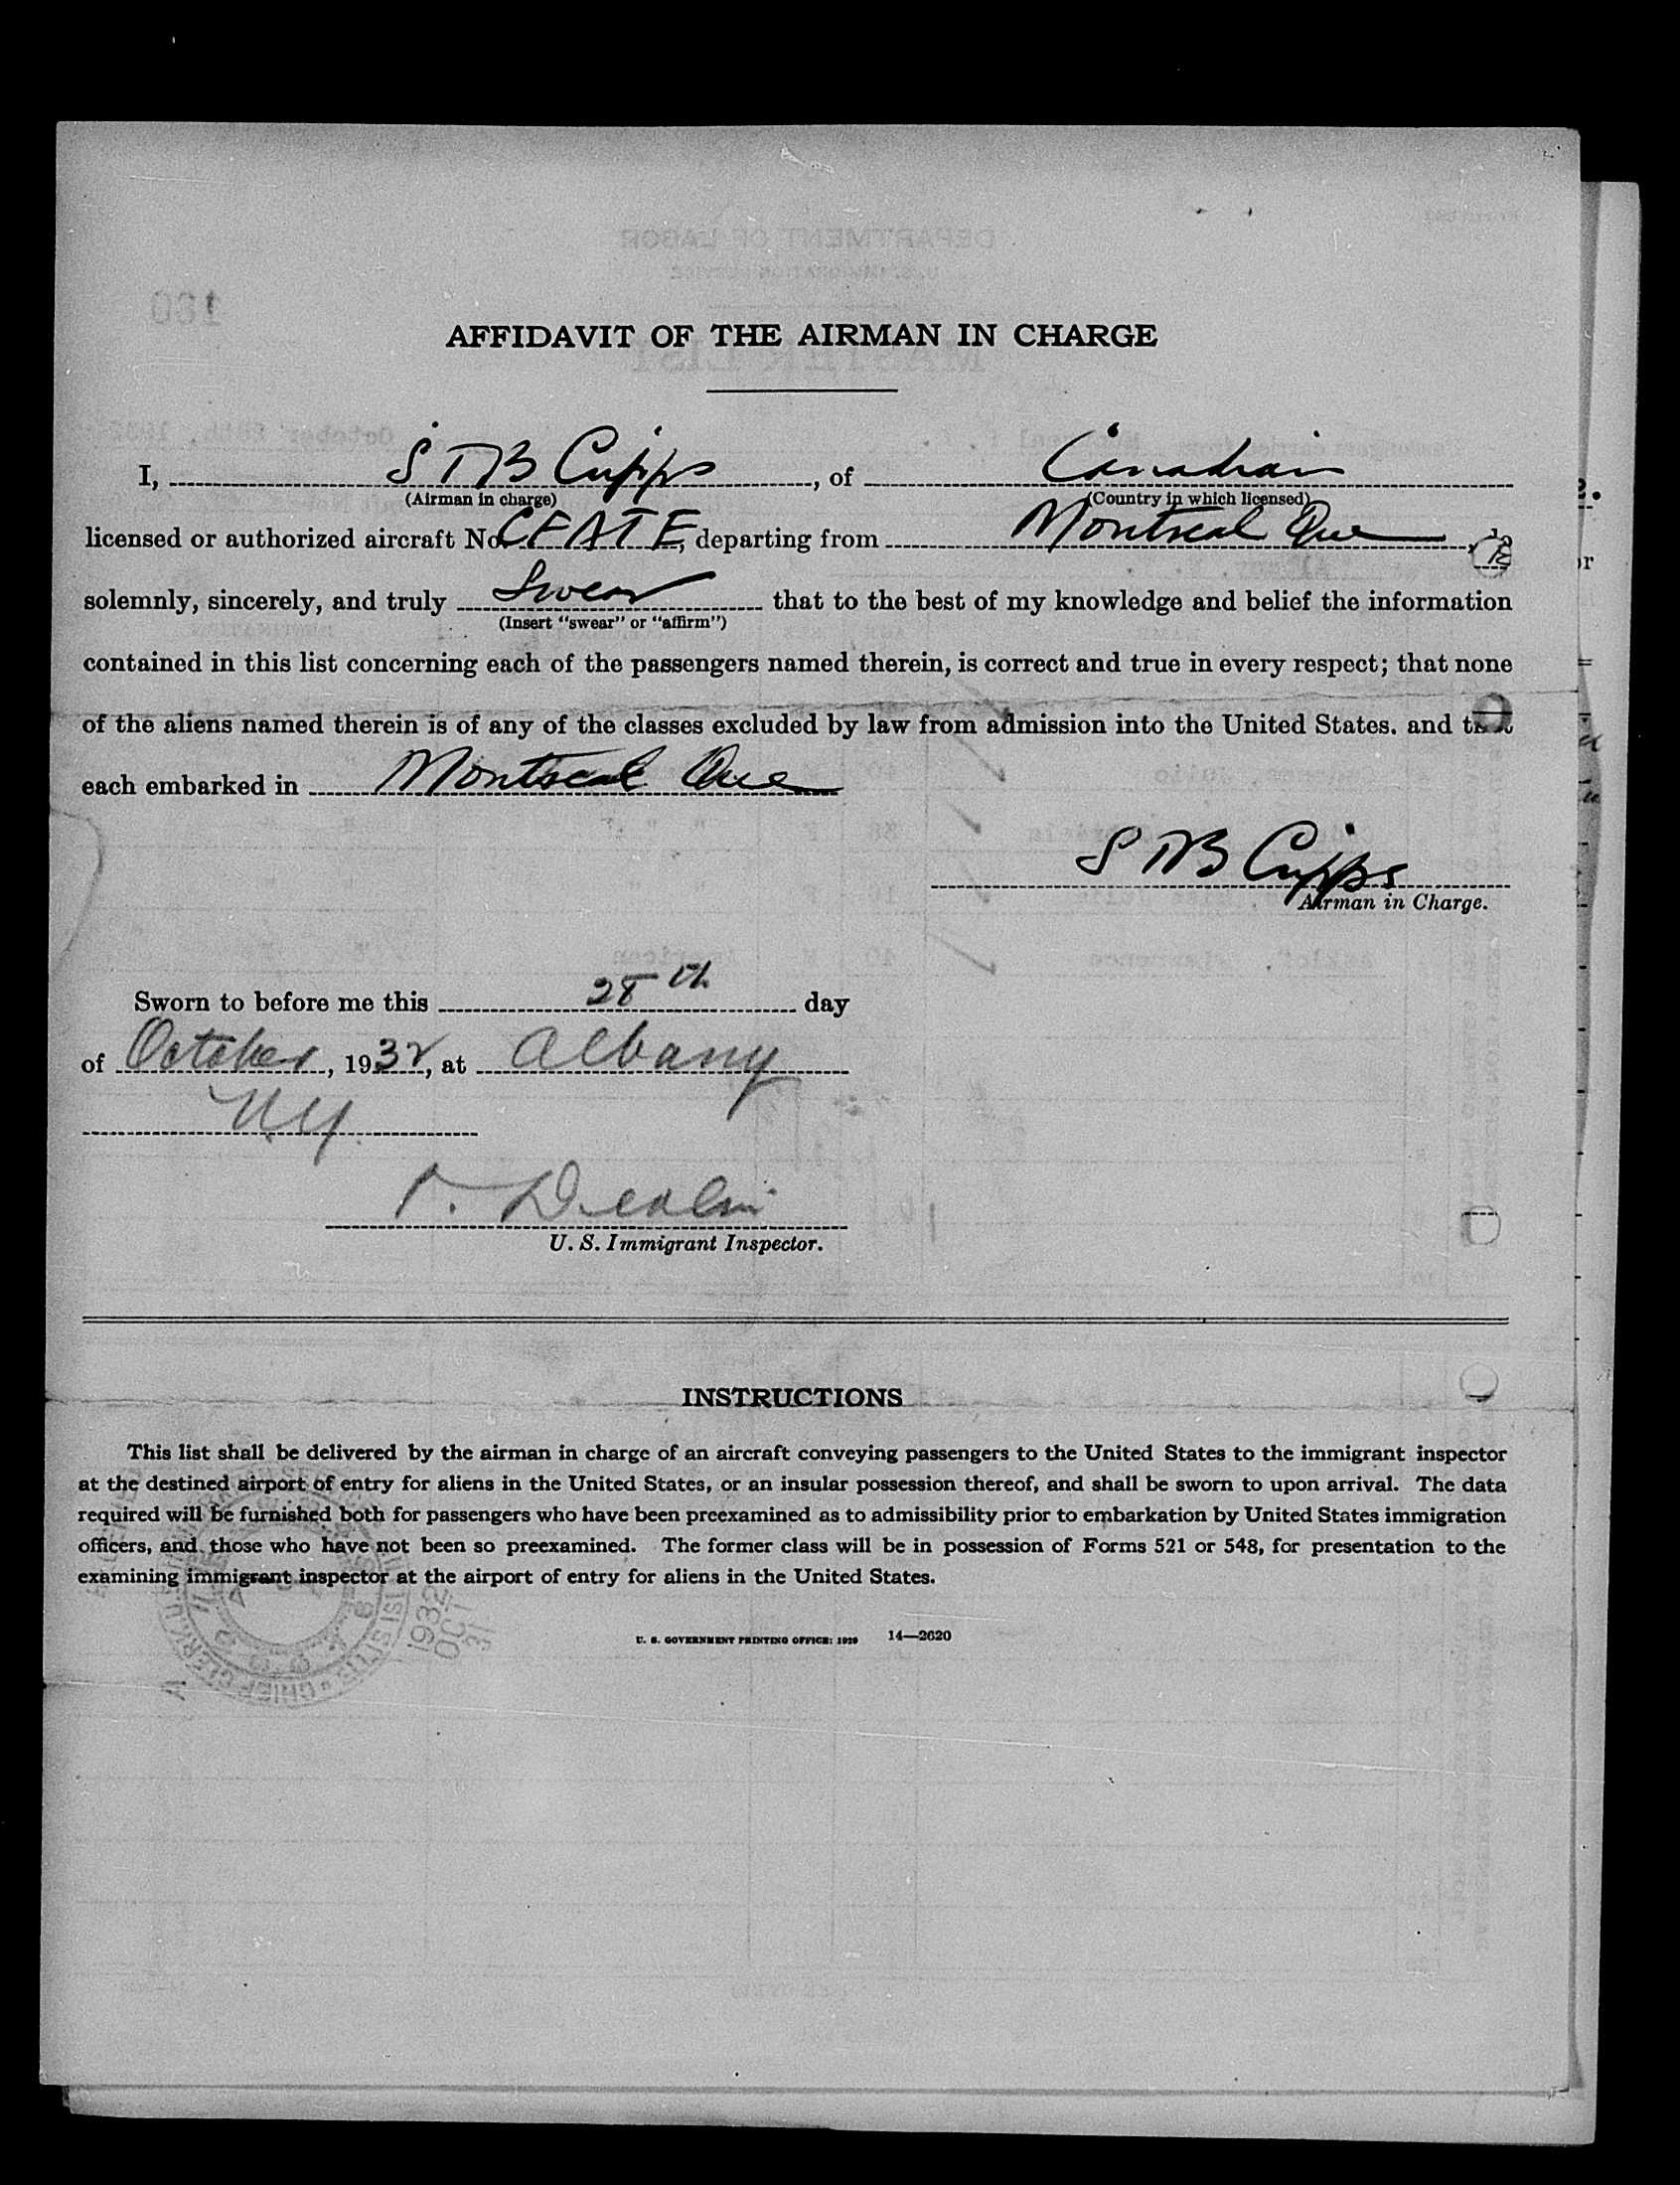 AFFIDAVIT OF THE AIRMAN IN CHARGE
I, S B Cripps, of Canadian
(Airman in charge) (Country in which licensed)
licensed or authorized aircraft No. CFATE, departing from Montreal Que,
solemnly, sincerely, and truly Swear that to the best of my knowledge and belief the information
(Insert "swear" or "affirm")
contained in this list concerning each of the passengers named therein, is correct and true in every respect; that none
of the aliens named therein is of any of the classes excluded by law from admission into the United States, and that
each embarked in Montreal Que
S B Cripps
Airman in Charge.
Sworn to before me this 28th day
of October, 1932, at Albany
N.Y.
U. S. Immigrant Inspector.
INSTRUCTIONS
This list shall be delivered by the airman in charge of an aircraft conveying passengers to the United States to the immigrant inspector
at the destined airport of entry for aliens in the United States, or an insular possession thereof, and shall be sworn to upon arrival. The data
required will be furnished both for passengers who have been preexamined as to admissibility prior to embarkation by United States immigration
officers, and those who have not been so preexamined. The former class will be in possession of Forms 521 or 548, for presentation to the
examining immigrant inspector at the airport of entry for aliens in the United States.
U. S. GOVERNMENT PRINTING OFFICE: 1929 14—2620
1932
OCT
31